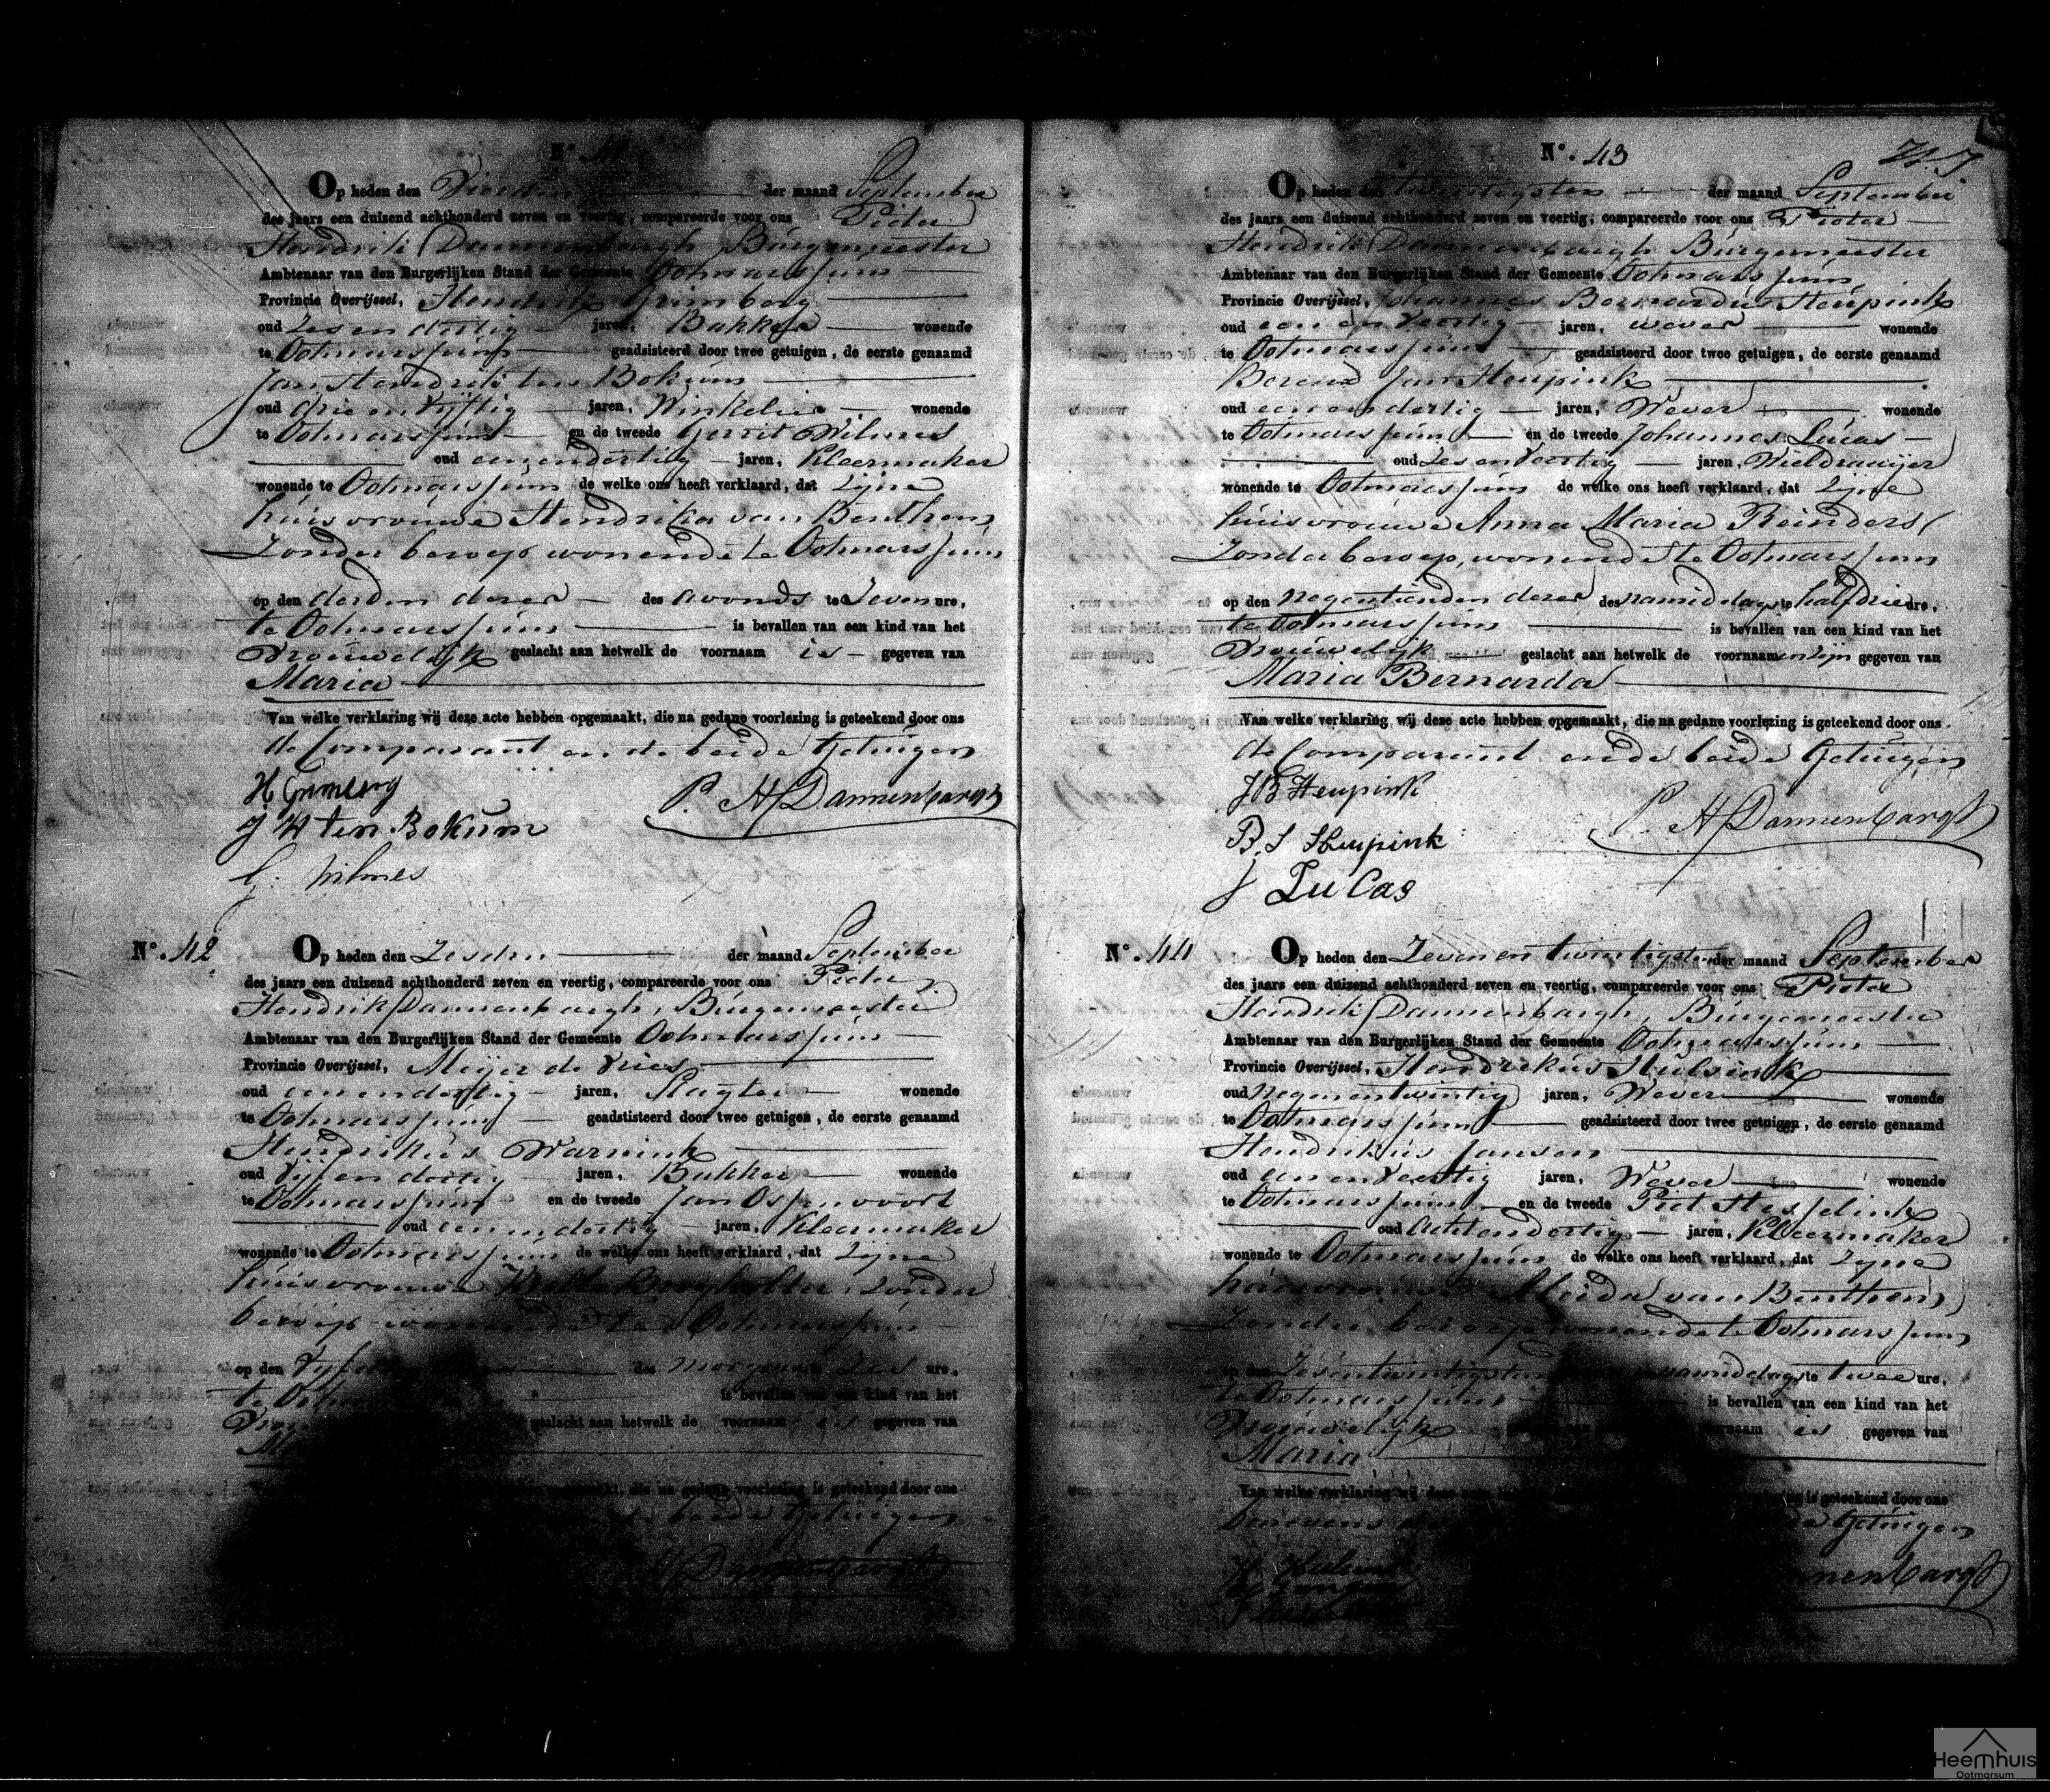 N°. 41
Op heden den Vierden der maand September
des jaars een duizend achthonderd zeven en veertig, compareerde voor ons Pieter
Hendrik Dannenbargh Burgemeester
Ambtenaar van den Burgerlijken Stand der Gemeente Ootmarssum
Provincie Overijssel, Hendrik Grimberg
oud zes en dertig jaren, Bakker wonende
te Ootmarssum geadsisteerd door twee getuigen, de eerste genaamd
Jan Hendrik ten Bokum
oud drie en vijftig jaren, Winkelier wonende
te Ootmarssum en de tweede Gerrit Wilmes
oud een en dertig jaren, Kleermaker
wonende te Ootmarssum de welke ons heeft verklaard, dat zijne
huisvrouwe Hendrika van Benthem
zonder beroep wonende te Ootmarssum
op den derden dezer des avonds te zeven ure,
te Ootmarssum is bevallen van een kind van het
vrouwelijk geslacht aan hetwelk de voornaam is gegeven van
Maria
Van welke verklaring wij deze acte hebben opgemaakt, die na gedane voorlezing is geteekend door ons
de Comparant en de beide Getuigen
H Grimberg
P. H Dannenbargh
J H ten Bokum
G. Wilmes
N°. 42
Op heden den Zesden der maand September
des jaars een duizend achthonderd zeven en veertig, compareerde voor ons Pieter
Hendrik Dannenbargh, Burgemeester
Ambtenaar van den Burgerlijken Stand der Gemeente Ootmarssum
Provincie Overijssel, Meijer de Vries
oud een en dertig jaren, Slagter wonende
te Ootmarssum geadstisteerd door twee getuigen, de eerste genaamd
Hendrikus Warnink
oud vijf en dertig jaren, Bakker wonende
te Ootmarssum en de tweede Jan Ospenvoort
oud een en dertig jaren, Kleermaker
wonende te Ootmarssum de welke ons heeft verklaard, dat zijne
huisvrouwe zonder
beroep wonende te Ootmarssum
op den Vijfden des morgens zes ure,
te is bevallen van een kind van het
geslacht aan hetwelk de voornaam is gegeven van
die na gedane voorlezing is geteekend door ons
de beide Getuigen
H Dannenbargh
N°. 43
Op heden den twintigsten der maand September
des jaars een duizend achthonderd zeven en veertig, compareerde voor ons Pieter
Hendrik Dannenbargh Burgemeester
Ambtenaar van den Burgerlijken Stand der Gemeente Ootmarssum
Provincie Overijssel, Johannes Bernardus Heupink
oud een en veertig jaren, wever wonende
te Ootmarssum geadsisteerd door twee getuigen, de eerste genaamd
Berend Jan Heupink
oud een en dertig jaren, Wever wonende
te Ootmarssum en de tweede Johannes Lucas
oud zes en veertig jaren, Wieldraaijer
wonende te Ootmarssum de welke ons heeft verklaard, dat zijne
huisvrouwe Anna Maria Reinders
zonder beroep, wonende te Ootmarssum
op den negentienden dezer des namiddags te half drie ure,
te Ootmarssum is bevallen van een kind van het
Vrouwelijk geslacht aan hetwelk de voornaamen zijn gegeven van
Maria Bernarda
Van welke verklaring wij deze acte hebben opgemaakt, die na gedane voorlezing is geteekend door ons
de Comparant en de beide Getuigen
J B Heupink
P. H Dannenbargh
B. J Heupink
J Lucas
N°. 44
Op heden den Zeven en twintigsten der maand September
des jaars een duizend achthonderd zeven en veertig, compareerde voor ons Pieter
Hendrik Dannenbargh, Burgemeester
Ambtenaar van den Burgerlijken Stand der Gemeente Ootmarssum
Provincie Overijssel, Hendrikus Hulsink
oud negen en twintig jaren, Wever wonende
te Ootmarssum geadsisteerd door twee getuigen, de eerste genaamd
Hendrikus Jansen
oud een en veertig jaren, Wever wonende
te Ootmarssum en de tweede Piet Hesselink
oud acht en dertig jaren, Kleermaker
wonende te Ootmarssum de welke ons heeft verklaard, dat zijne
huisvrouwe Aleida van Benthem
zonder beroep wonende te Ootmarssum
Zes en twintigsten namiddags te twee ure,
te Ootmarssum is bevallen van een kind van het
Vrouwelijk is gegeven van
Maria
Van welke verklaring wij deze is geteekend door ons
benevens Getuigen
Heemhuis
Ootmarsum